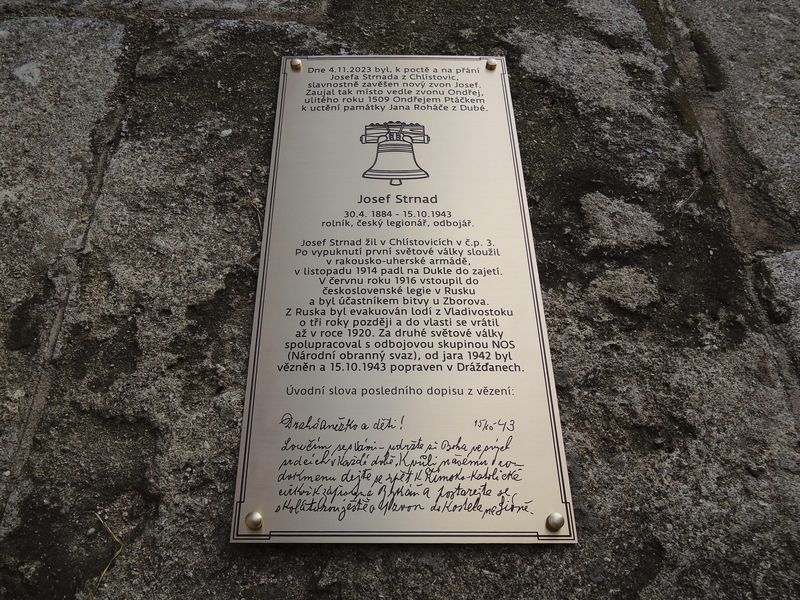 Dne 4.11.2023 byl, k poctě a na přání
Josefa Strnada z Chlístovic,
slavnostně zavěšen nový zvon Josef.
Zaujal tak místo vedle zvonu Ondřej,
ulitého roku 1509 Ondřejem Ptáčkem
k uctění památky Jana Roháče z Dubé.
Josef Strnad
30.4. 1884 - 15.10.1943
rolník, český legionář, odbojář.
Josef Strnad žil v Chlístovicích v č.p. 3.
Po vypuknutí první světové války sloužil
v rakousko-uherské armádě,
v listopadu 1914 padl na Dukle do zajetí.
V červnu roku 1916 vstoupil do
československé legie v Rusku
a byl účastníkem bitvy u Zborova.
Z Ruska byl evakuován lodí z Vladivostoku
o tři roky později a do vlasti se vrátil
až v roce 1920. Za druhé světové války
spolupracoval s odbojovou skupinou NOS
(Národní obranný svaz), od jara 1942 byl
vězněn a 15.10.1943 popraven v Drážďanech.
Úvodní slova posledního dopisu z vězení:
Drahá Anežko a děti! 15/10-43
Loučím se s Vámi - udržte si Boha ve svých
srdcích v každé době, Kvůli našemu
dejte se zpět k Římsko-katolické
církvi a postarejte se
o zvon do Kostela